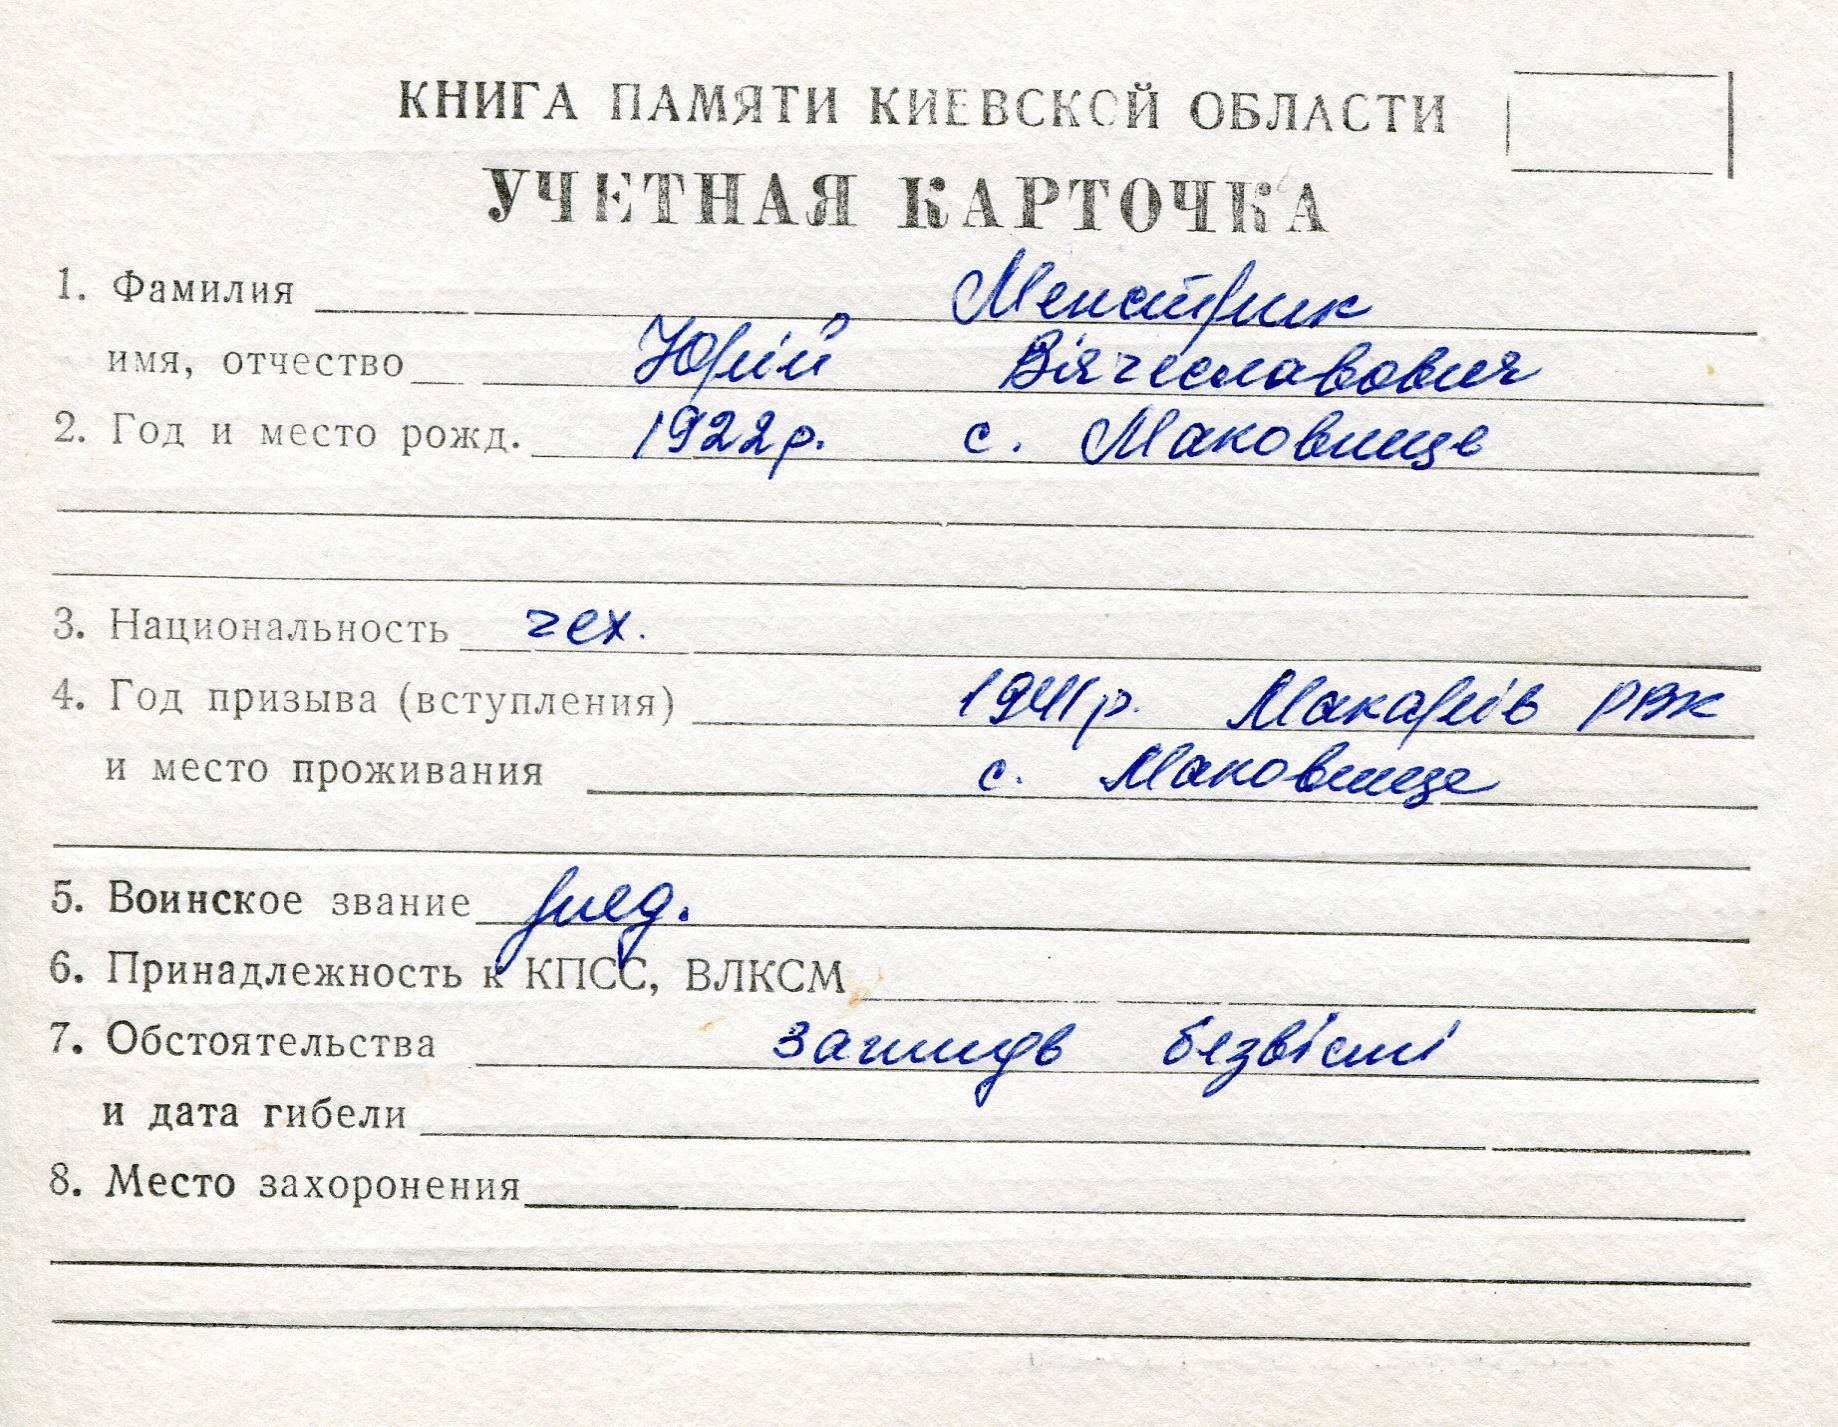 КНИГА ПАМЯТИ КИЕВСКОЙ ОБЛАСТИ
УЧЕТНАЯ КАРТОЧКА
1. Фамилия Менстрик
имя, отчество Юрій Вячеславович
2. Год и место рожд. 1922р. с. Маковище
3. Национальность чех.
4. Год призыва (вступления) 1941р. Макарів РВК
и место проживания с. Маковище
5. Воинское звание ряд.
6. Принадлежность к КПСС, ВЛКСМ
7. Обстоятельства загинув безвісті
и дата гибели
8. Место захоронения